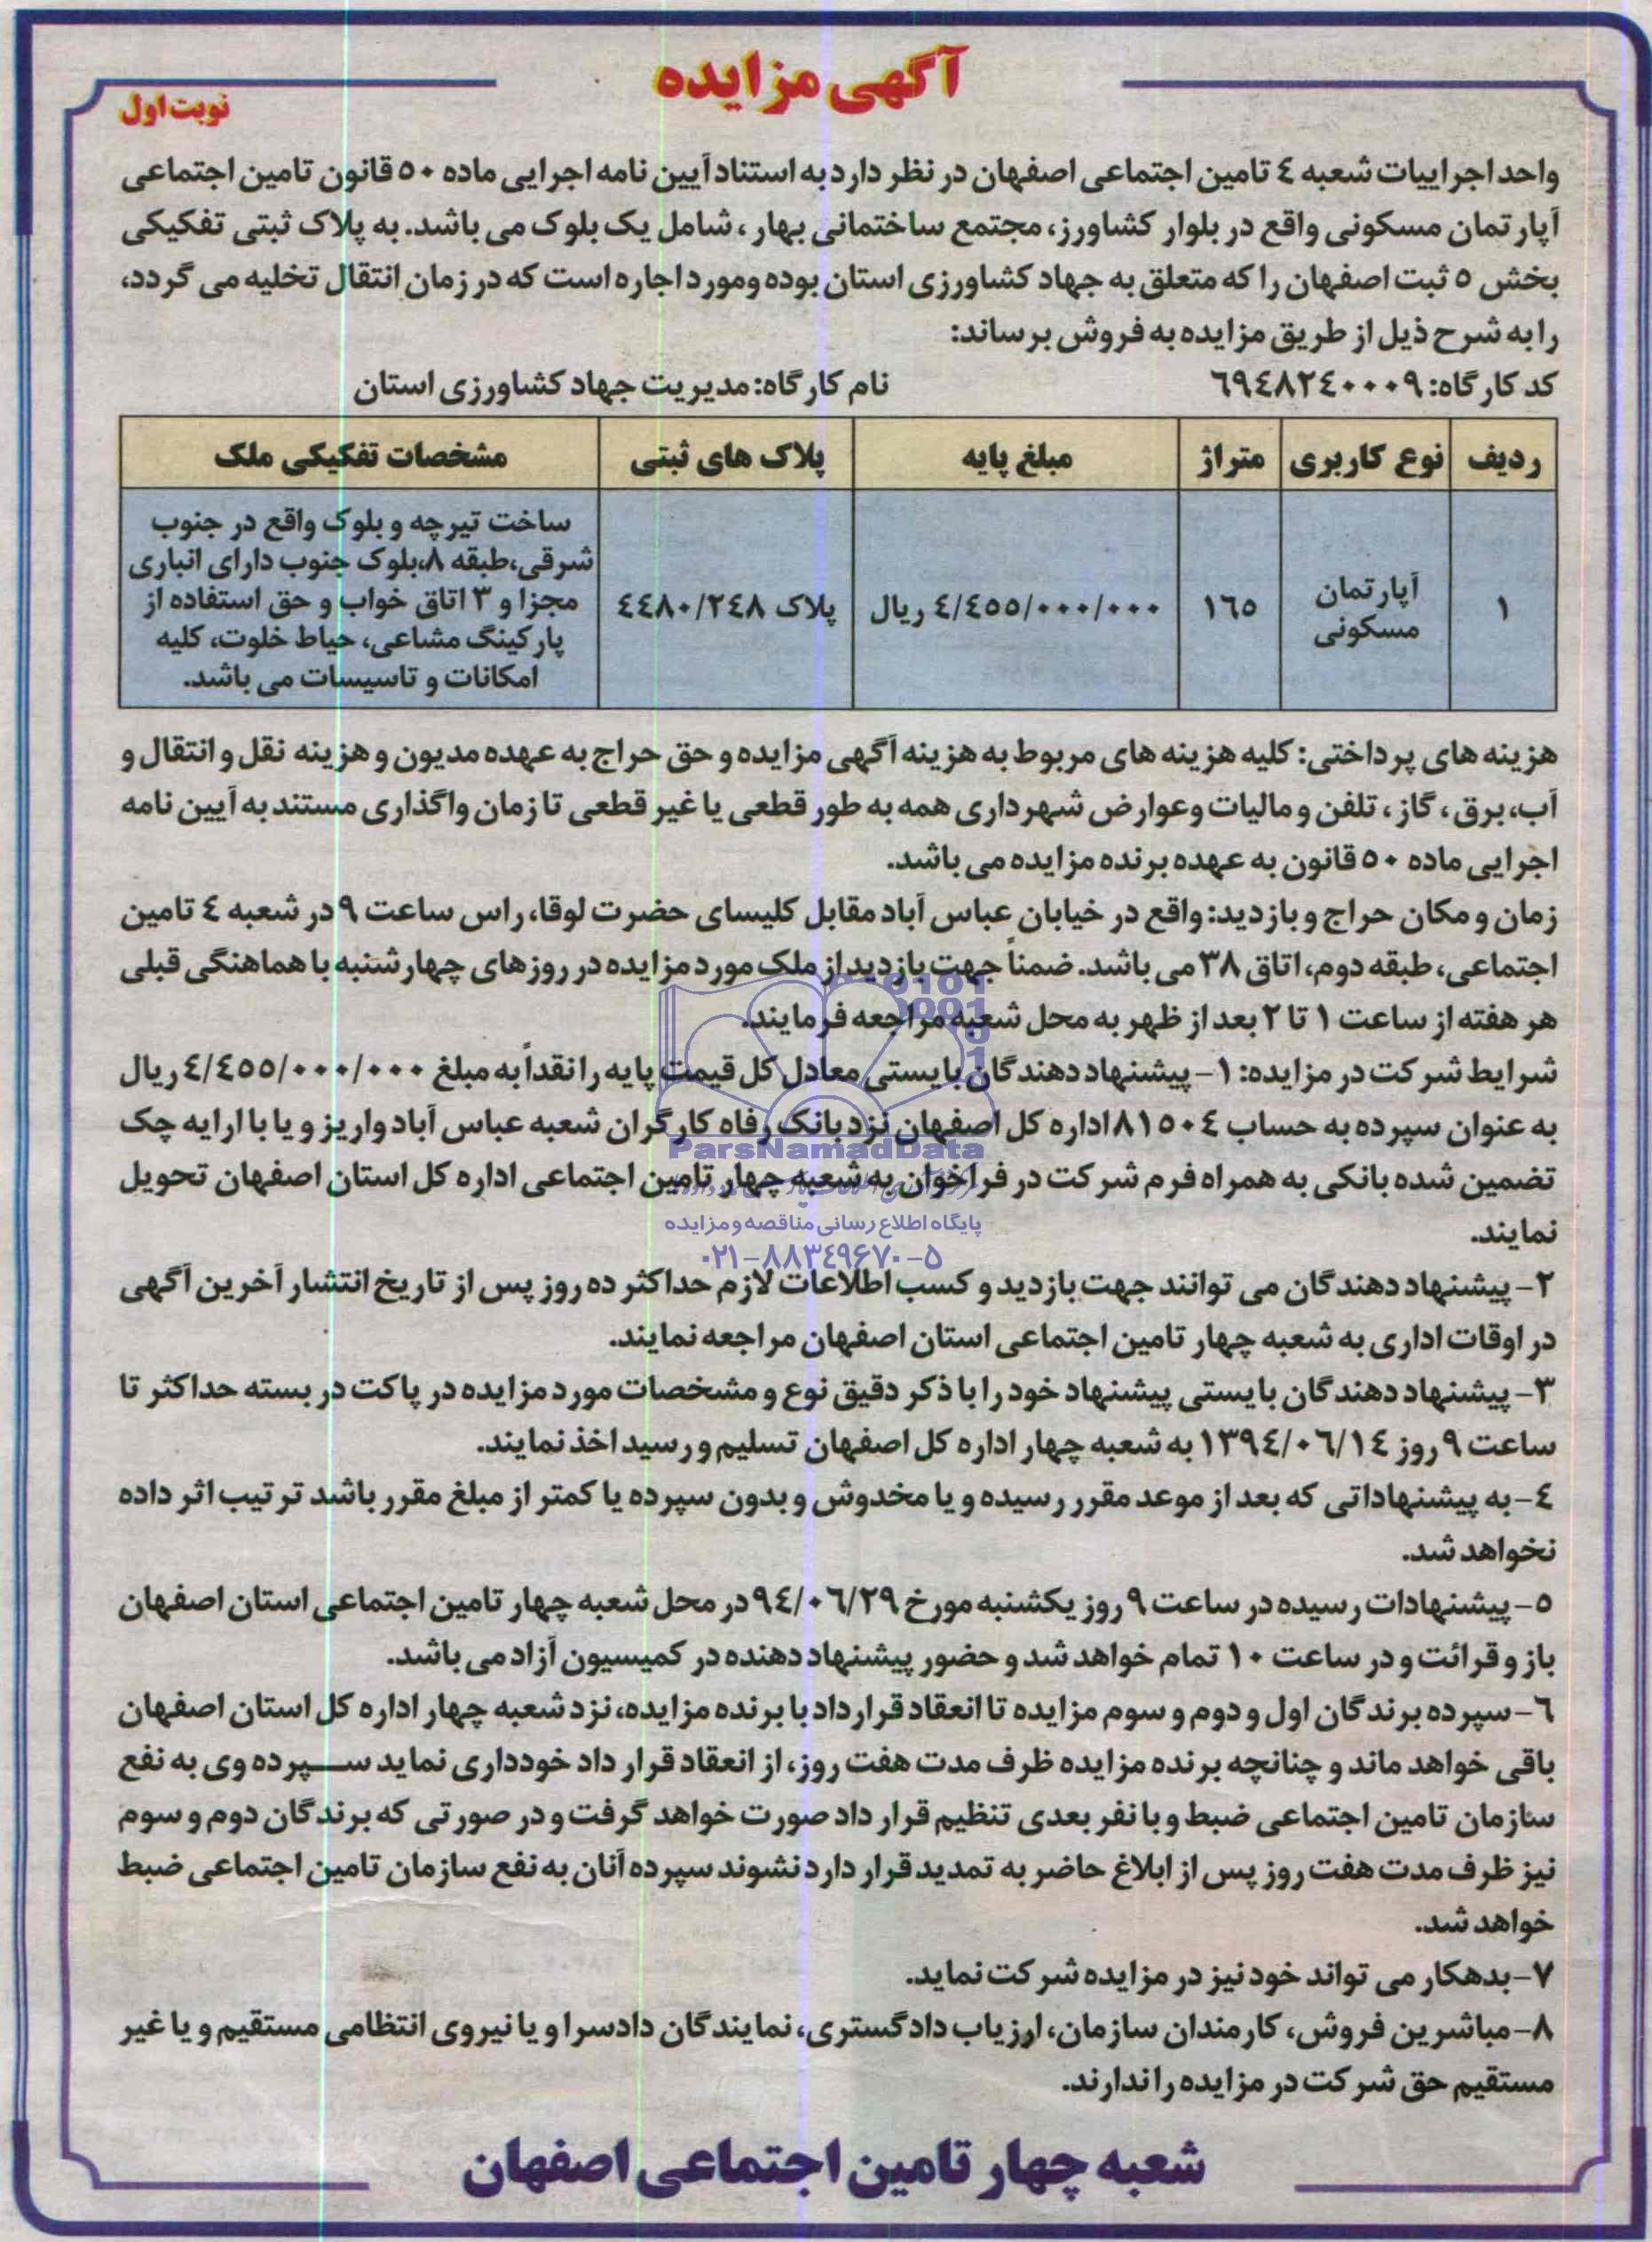 آگهی مزایده
نوبت اول
واحد اجراییات شعبه ٤ تامین اجتماعی اصفهان در نظر دارد به استناد آیین نامه اجرایی ماده ٥٠ قانون تامین اجتماعی
آپارتمان مسکونی واقع در بلوار کشاورز، مجتمع ساختمانی بهار ، شامل یک بلوک می باشد. به پلاک ثبتی تفکیکی
بخش ٥ ثبت اصفهان را که متعلق به جهاد کشاورزی استان بوده ومورد اجاره است که در زمان انتقال تخلیه می گردد،
را به شرح ذیل از طریق مزایده به فروش برساند:
کد کارگاه: ٦٩٤٨٢٤٠٠٠٩ نام کارگاه: مدیریت جهاد کشاورزی استان
ردیف نوع کاربری متراژ مبلغ پایه پلاک های ثبتی مشخصات تفکیکی ملک
١ آپارتمان مسکونی ١٦٥ ٤/٤٥٥/٠٠٠/٠٠٠ ریال پلاک ٤٤٨٠/٢٤٨
ساخت تیرچه و بلوک واقع در جنوب
شرقی،طبقه ٨،بلوک جنوب دارای انباری
مجزا و ٣ اتاق خواب و حق استفاده از
پارکینگ مشاعی، حیاط خلوت، کلیه
امکانات و تاسیسات می باشد.
هزینه های پرداختی: کلیه هزینه های مربوط به هزینه آگهی مزایده و حق حراج به عهده مدیون و هزینه نقل و انتقال و
آب، برق ، گاز ، تلفن و مالیات وعوارض شهرداری همه به طور قطعی یا غیر قطعی تا زمان واگذاری مستند به آیین نامه
اجرایی ماده ٥٠ قانون به عهده برنده مزایده می باشد.
زمان و مکان حراج و بازدید: واقع در خیابان عباس آباد مقابل کلیسای حضرت لوقا، راس ساعت ٩ در شعبه ٤ تامین
اجتماعی، طبقه دوم، اتاق ٣٨ می باشد. ضمناً جهت بازدید از ملک مورد مزایده در روزهای چهارشنبه با هماهنگی قبلی
هر هفته از ساعت ١ تا ٢ بعد از ظهر به محل شعبه مراجعه فرمایند.
شرایط شرکت در مزایده: ١- پیشنهاد دهندگان بایستی معادل کل قیمت پایه را نقداً به مبلغ ٤/٤٥٥/٠٠٠/٠٠٠ ریال
به عنوان سپرده به حساب ٨١٥٠٤ اداره کل اصفهان نزد بانک رفاه کارگران شعبه عباس آباد واریز و یا با ارایه چک
ParsNamadData
تضمین شده بانکی به همراه فرم شرکت در فراخوان به شعبه چهار تامین اجتماعی اداره کل استان اصفهان تحویل
نمایند.
پایگاه اطلاع رسانی مناقصه و مزایده
۰۲۱-۸۸۳۴۹۶۷۰-۵
٢- پیشنهاد دهندگان می توانند جهت بازدید و کسب اطلاعات لازم حداکثر ده روز پس از تاریخ انتشار آخرین آگهی
در اوقات اداری به شعبه چهار تامین اجتماعی استان اصفهان مراجعه نمایند.
٣- پیشنهاد دهندگان بایستی پیشنهاد خود را با ذکر دقیق نوع و مشخصات مورد مزایده در پاکت در بسته حداکثر تا
ساعت ٩ روز ١٣٩٤/٠٦/١٤ به شعبه چهار اداره کل اصفهان تسلیم و رسید اخذ نمایند.
٤- به پیشنهاداتی که بعد از موعد مقرر رسیده و یا مخدوش و بدون سپرده یا کمتر از مبلغ مقرر باشد ترتیب اثر داده
نخواهد شد.
٥- پیشنهادات رسیده در ساعت ٩ روز یکشنبه مورخ ٩٤/٠٦/٢٩ در محل شعبه چهار تامین اجتماعی استان اصفهان
باز و قرائت و در ساعت ١٠ تمام خواهد شد و حضور پیشنهاد دهنده در کمیسیون آزاد می باشد.
٦- سپرده برندگان اول و دوم و سوم مزایده تا انعقاد قرارداد با برنده مزایده، نزد شعبه چهار اداره کل استان اصفهان
باقی خواهد ماند و چنانچه برنده مزایده ظرف مدت هفت روز، از انعقاد قرار داد خودداری نماید سپرده وی به نفع
سازمان تامین اجتماعی ضبط و با نفر بعدی تنظیم قرار داد صورت خواهد گرفت و در صورتی که برندگان دوم و سوم
نیز ظرف مدت هفت روز پس از ابلاغ حاضر به تمدید قرار دارد نشوند سپرده آنان به نفع سازمان تامین اجتماعی ضبط
خواهد شد.
٧- بدهکار می تواند خود نیز در مزایده شرکت نماید.
٨- مباشرین فروش، کارمندان سازمان، ارزیاب دادگستری، نمایندگان دادسرا و یا نیروی انتظامی مستقیم و یا غیر
مستقیم حق شرکت در مزایده را ندارند.
شعبه چهار تامین اجتماعی اصفهان